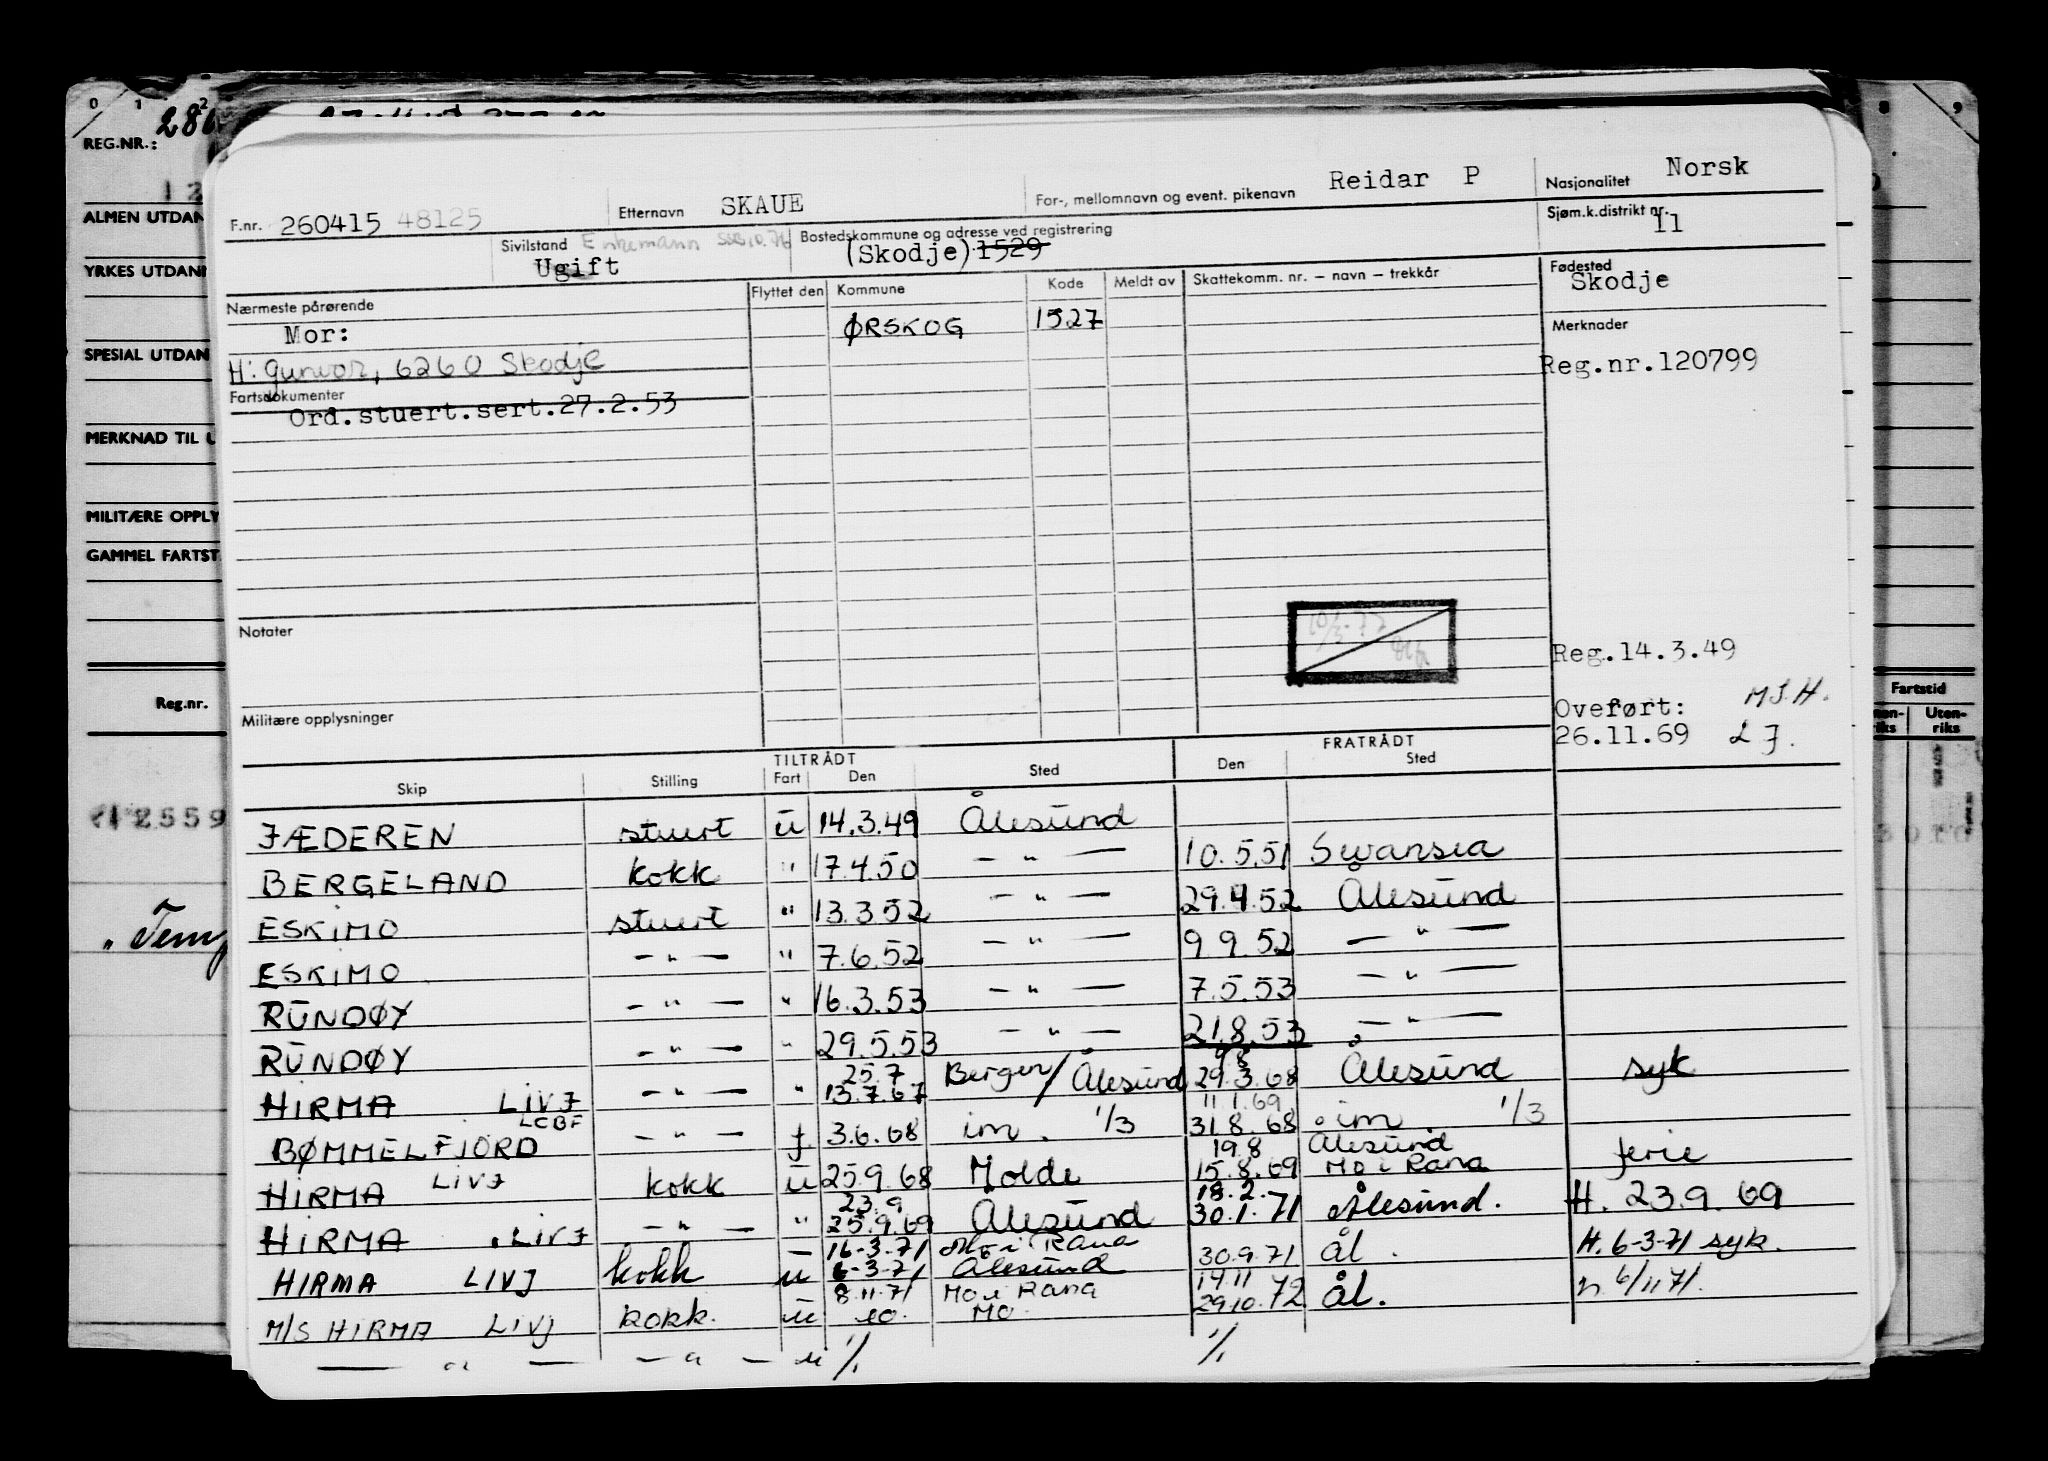 0 1 2 8 9
REG.NR.: 28
12
ALMEN UTDAN
YRKES UTDANN
SPESIAL UTDAN
MERKNAD TIL U
MILITÆRE OPPLY
GAMMEL FARTST
Reg.nr.
Fartstid
Uten-
riks
2559
"Temp
F.nr. 260415 48125 Etternavn SKAUE For-, mellomnavn og event. pikenavn Reidar P Nasjonalitet Norsk
Sivilstand Enkemann SSB 10.76 Bostedskommune og adresse ved registrering Sjøm.k.distrikt nr. 11
Ugift (Skodje) 1529
Nærmeste pårørende Flyttet den Kommune Kode Meldt av Skattekomm. nr. – navn – trekkår Fødested Skodje
Mor: ØRSKOG 1527 Merknader
H: Gunvor, 6260 Skodje Reg.nr.120799
Fartsdokumenter
Ord.stuert.sert.27.2.53
Notater
10/3-77
Reg.14.3.49
Militære opplysninger
Overført: M.S.H.
26.11.69 L J.
TILTRÅDT FRATRÅDT
Skip Stilling Fart Den Sted Den Sted
JÆDEREN stuert u 14.3.49 Ålesund
BERGELAND kokk " 17.4.50 — " — 10.5.51 Swansea
ESKIMO stuert " 13.3.52 — " — 29.4.52 Ålesund
ESKIMO — " — " 7.6.52 — " — 9.9.52 — " —
RUNDØY — " — " 16.3.53 — " — 7.5.53 — " —
RUNDØY — " — " 29.5.53 — " — 21.8.53 — " —
25.7
HIRMA LIVJ — " — " 13.7.67 Bergen/Ålesund 29.3.68 Ålesund syk
LCBF 11.1.69
BØMMELFJORD — " — f 3.6.68 im. 1/3 31.8.68 im 1/3
19.8 Ålesund
HIRMA LIVJ kokk u 25.9.68 Molde 15.8.69 Mo i Rana ferie
23.9 18.2.
HIRMA LIVJ — " — " 25.9.69 Ålesund 30.1.71 Ålesund. H. 23.9.69
16-3-71 Mo i Rana
HIRMA LIVJ kokk u 6-3-71 Ålesund 30.9.71 ål. H. 6-3-71 syk.
8.11.71 Mo i Rana 14.11
M/S HIRMA LIVJ kokk. u Mo 29.10.72 ål. 6/11 71.
— " — — " — u 1/1 1/1